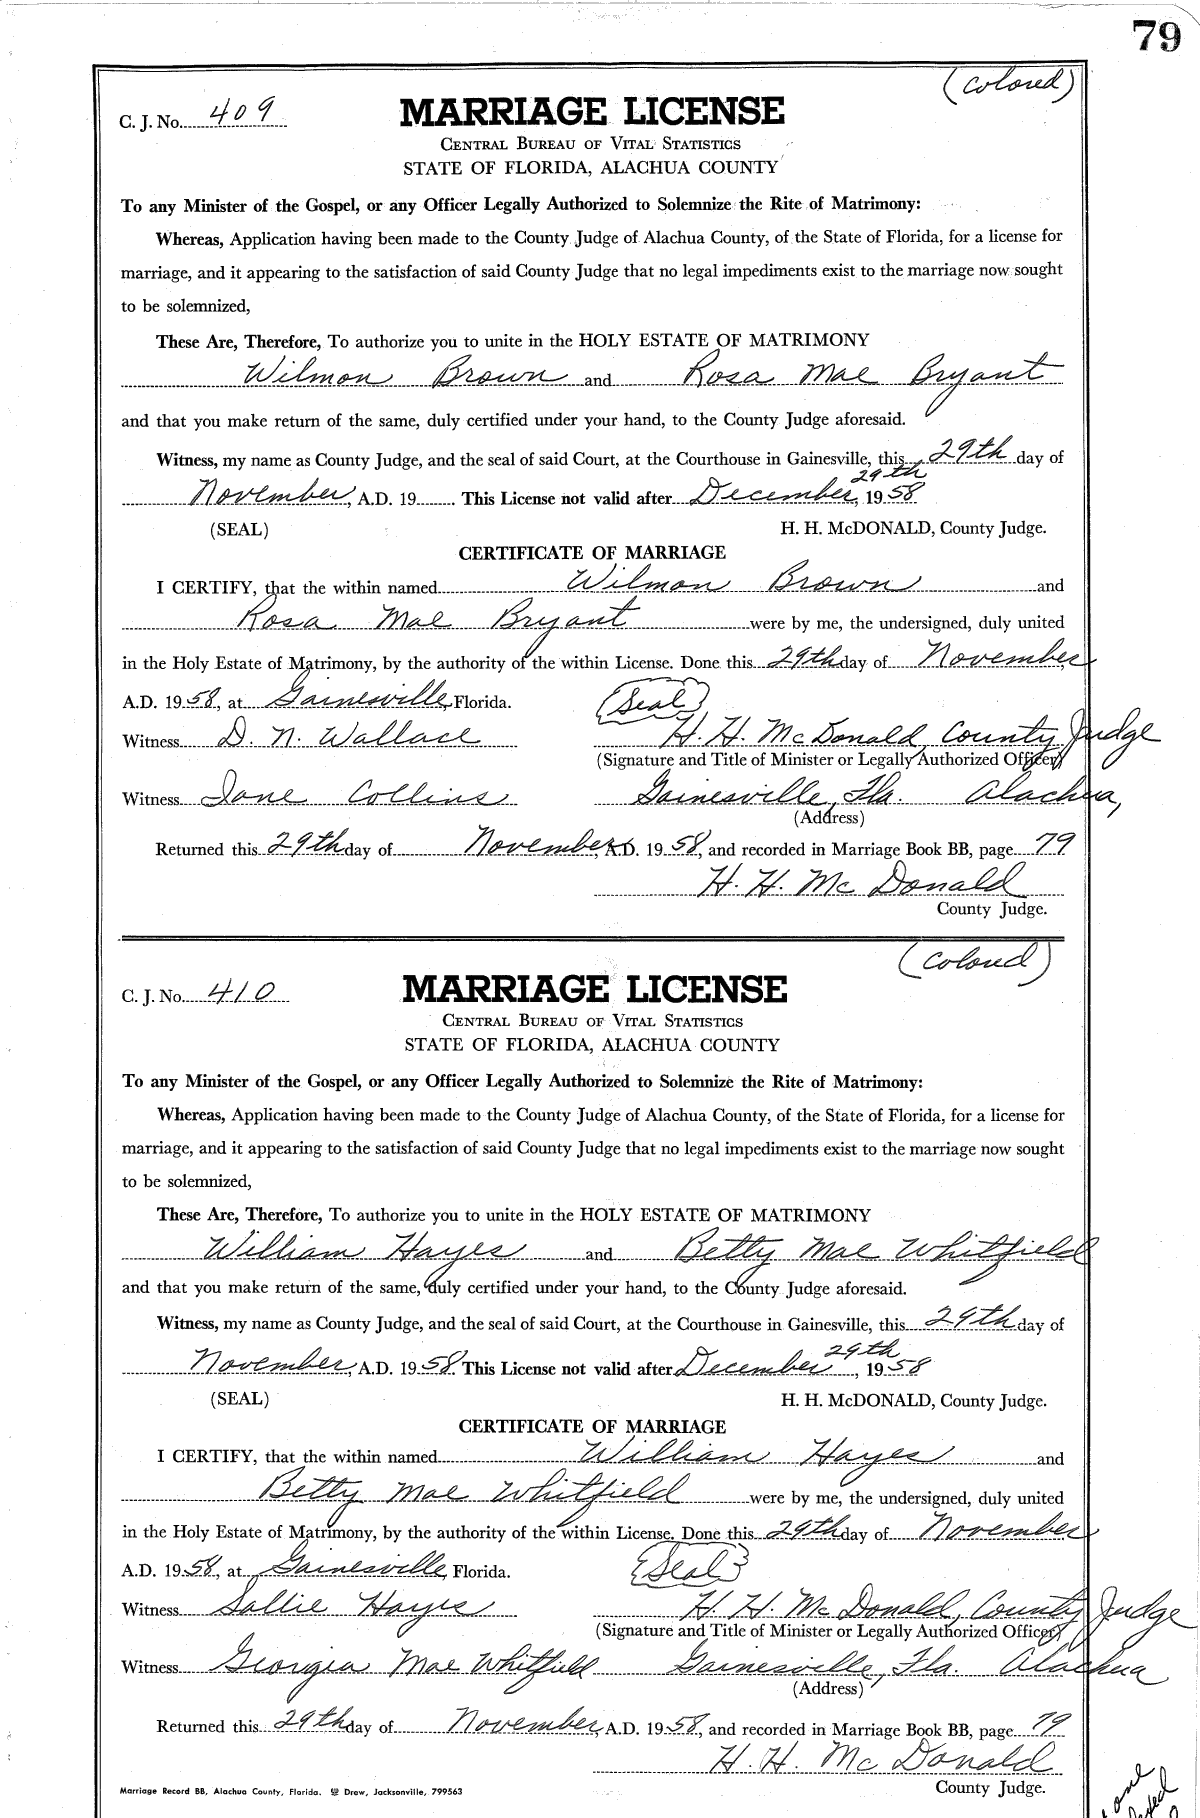 79
(colored)
C. J. No. 409
MARRIAGE LICENSE
CENTRAL BUREAU OF VITAL STATISTICS
STATE OF FLORIDA, ALACHUA COUNTY
To any Minister of the Gospel, or any Officer Legally Authorized to Solemnize the Rite of Matrimony:
Whereas, Application having been made to the County Judge of Alachua County, of the State of Florida, for a license for
marriage, and it appearing to the satisfaction of said County Judge that no legal impediments exist to the marriage now sought
to be solemnized,
These Are, Therefore, To authorize you to unite in the HOLY ESTATE OF MATRIMONY
Wilmon Brown and Rosa Mae Bryant
and that you make return of the same, duly certified under your hand, to the County Judge aforesaid.
Witness, my name as County Judge, and the seal of said Court, at the Courthouse in Gainesville, this 29th day of
November, A.D. 19 . This License not valid after December 29th, 1958
(SEAL) H. H. McDONALD, County Judge.
CERTIFICATE OF MARRIAGE
I CERTIFY, that the within named Wilmon Brown and
Rosa Mae Bryant were by me, the undersigned, duly united
in the Holy Estate of Matrimony, by the authority of the within License. Done this 29th day of November,
A.D. 1958, at Gainesville, Florida. (Seal)
Witness D. N. Wallace H. H. McDonald, County Judge
(Signature and Title of Minister or Legally Authorized Officer)
Witness Jane Collins Gainesville, Fla. Alachua,
(Address)
Returned this 29th day of November, A.D. 1958, and recorded in Marriage Book BB, page 79
H. H. McDonald
County Judge.
(colored)
C. J. No. 410
MARRIAGE LICENSE
CENTRAL BUREAU OF VITAL STATISTICS
STATE OF FLORIDA, ALACHUA COUNTY
To any Minister of the Gospel, or any Officer Legally Authorized to Solemnize the Rite of Matrimony:
Whereas, Application having been made to the County Judge of Alachua County, of the State of Florida, for a license for
marriage, and it appearing to the satisfaction of said County Judge that no legal impediments exist to the marriage now sought
to be solemnized,
These Are, Therefore, To authorize you to unite in the HOLY ESTATE OF MATRIMONY
William Hayes and Betty Mae Whitfield
and that you make return of the same, duly certified under your hand, to the County Judge aforesaid.
Witness, my name as County Judge, and the seal of said Court, at the Courthouse in Gainesville, this 29th day of
November, A.D. 1958. This License not valid after December 29th, 1958
(SEAL) H. H. McDONALD, County Judge.
CERTIFICATE OF MARRIAGE
I CERTIFY, that the within named William Hayes and
Betty Mae Whitfield were by me, the undersigned, duly united
in the Holy Estate of Matrimony, by the authority of the within License. Done this 29th day of November
A.D. 1958, at Gainesville, Florida. (Seal)
Witness Sallie Hayes H. H. McDonald, County Judge
(Signature and Title of Minister or Legally Authorized Officer)
Witness Georgia Mae Whitfield Gainesville, Fla. Alachua
(Address)
Returned this 29th day of November, A.D. 1958, and recorded in Marriage Book BB, page 79
H. H. McDonald
County Judge.
Marriage Record BB, Alachua County, Florida. Drew, Jacksonville, 799563